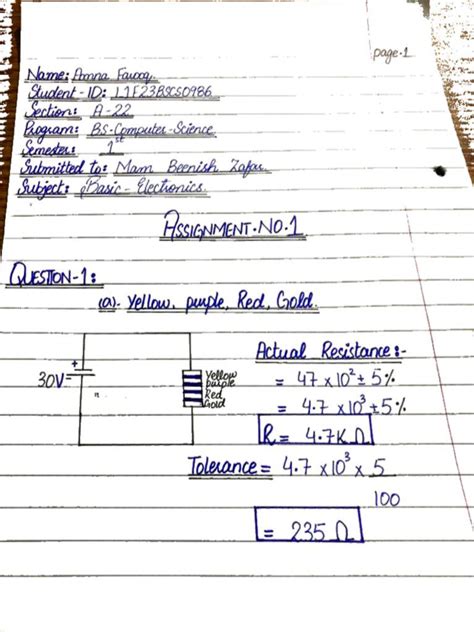 page.1
Name: Amna Farooq
Student-ID: L1F23BSCS0986
Section: A-22
Program: BS-Computer-Science
Semester: 1st
Submitted to: Mam Beenish Zafar
Subject: Basic-Electronics
ASSIGNMENT.NO.1
QUESTION-1:
(a). Yellow, purple, Red, Gold.
Actual Resistance:-
30V
+
Yellow
purple
Red
Gold
= 47 x10² ± 5%
= 4.7 x10³ ±5%
R= 4.7K Ω
Tolerance = 4.7 x10³ x 5
100
= 235 Ω